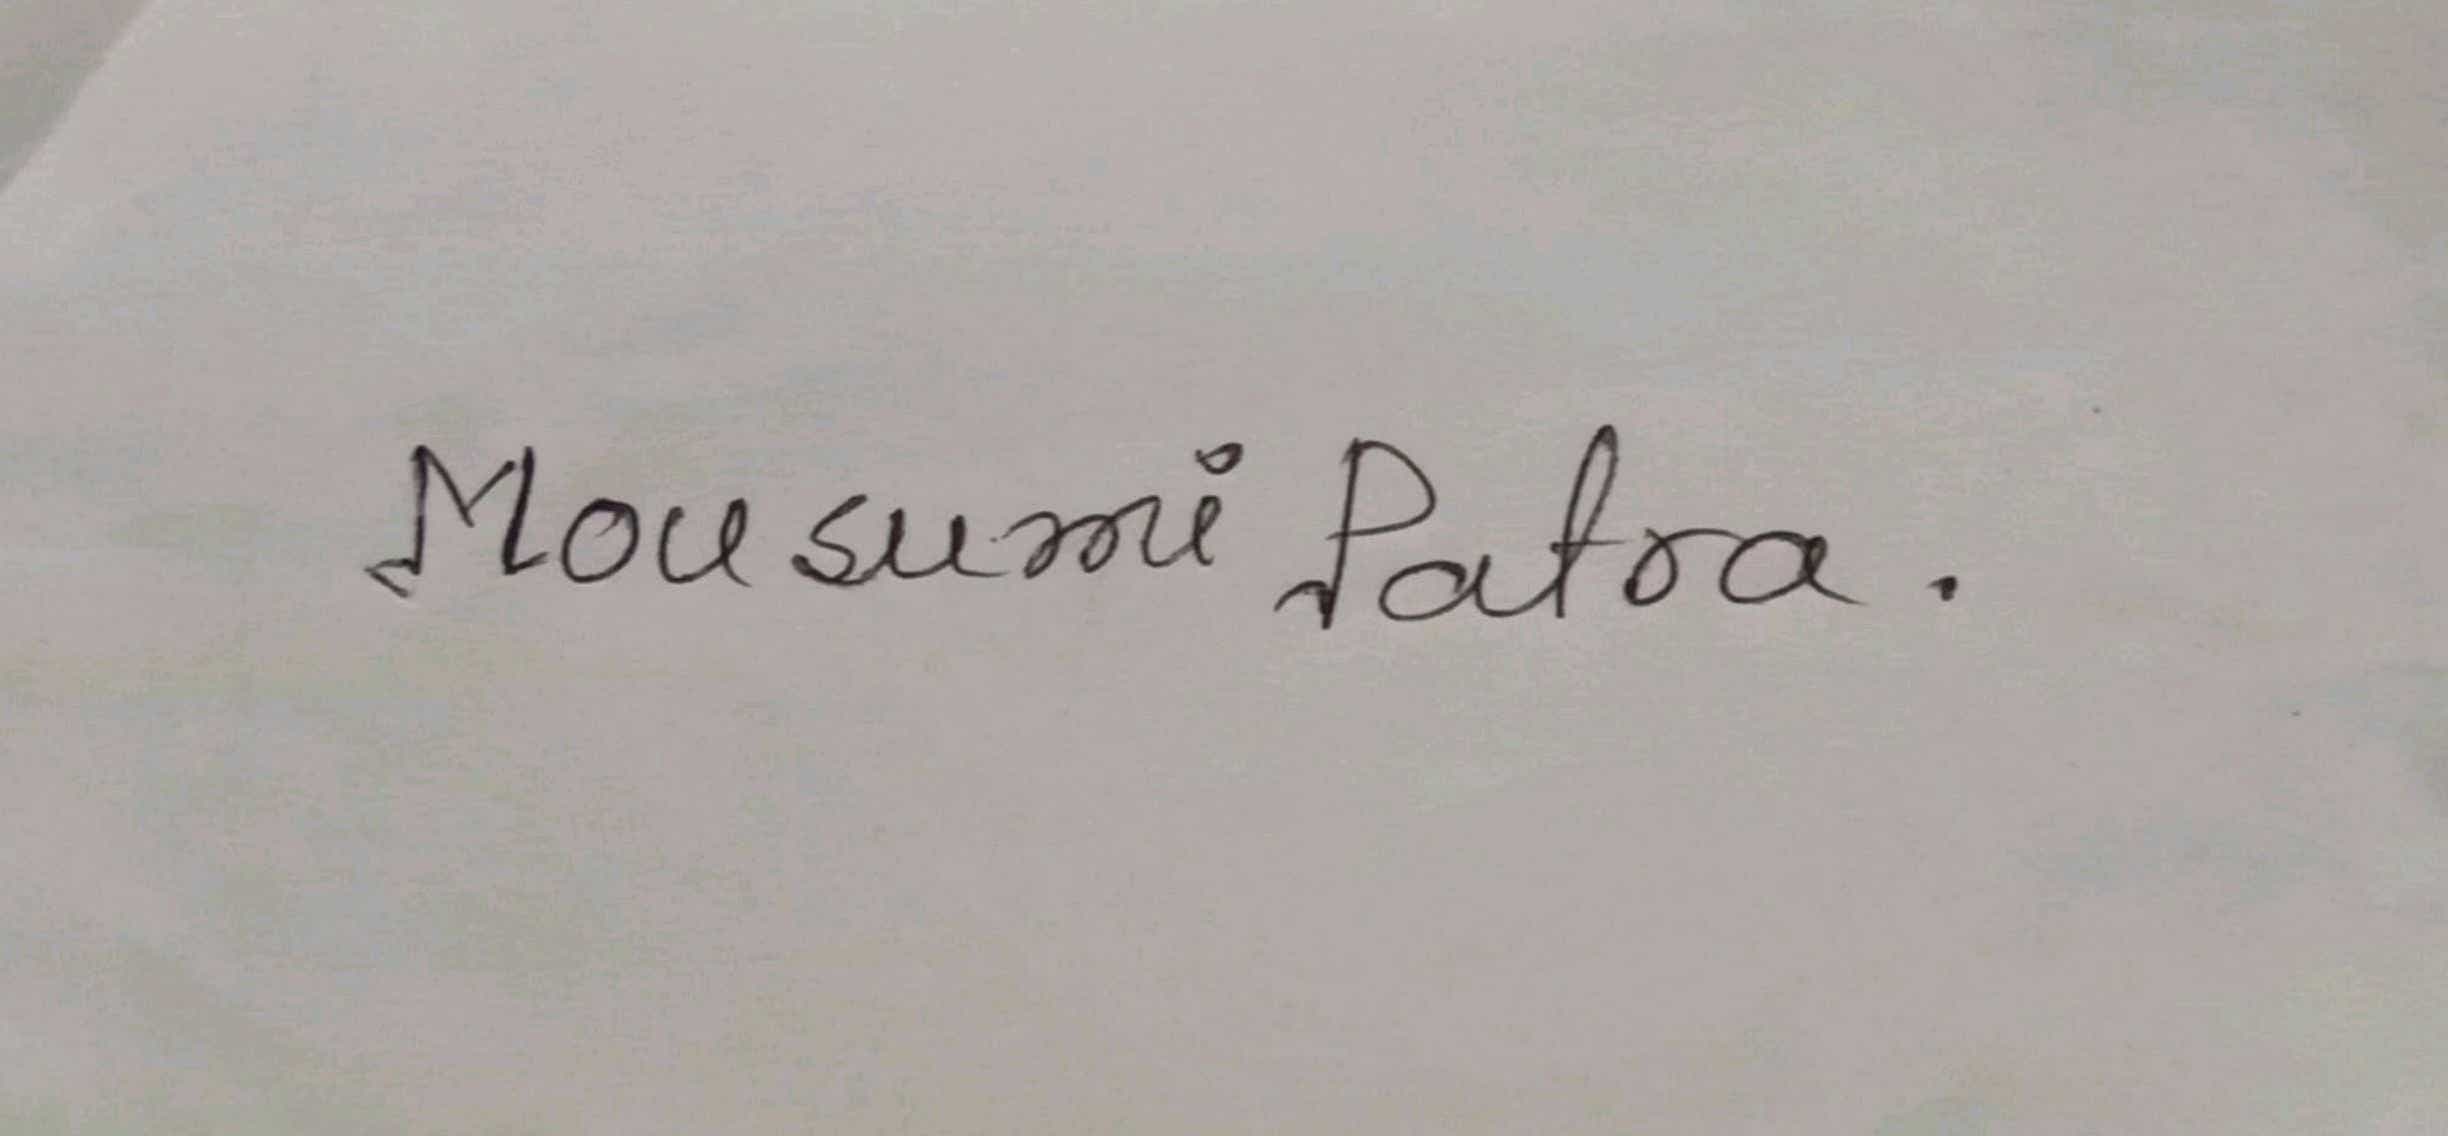 Mousumi Patra.